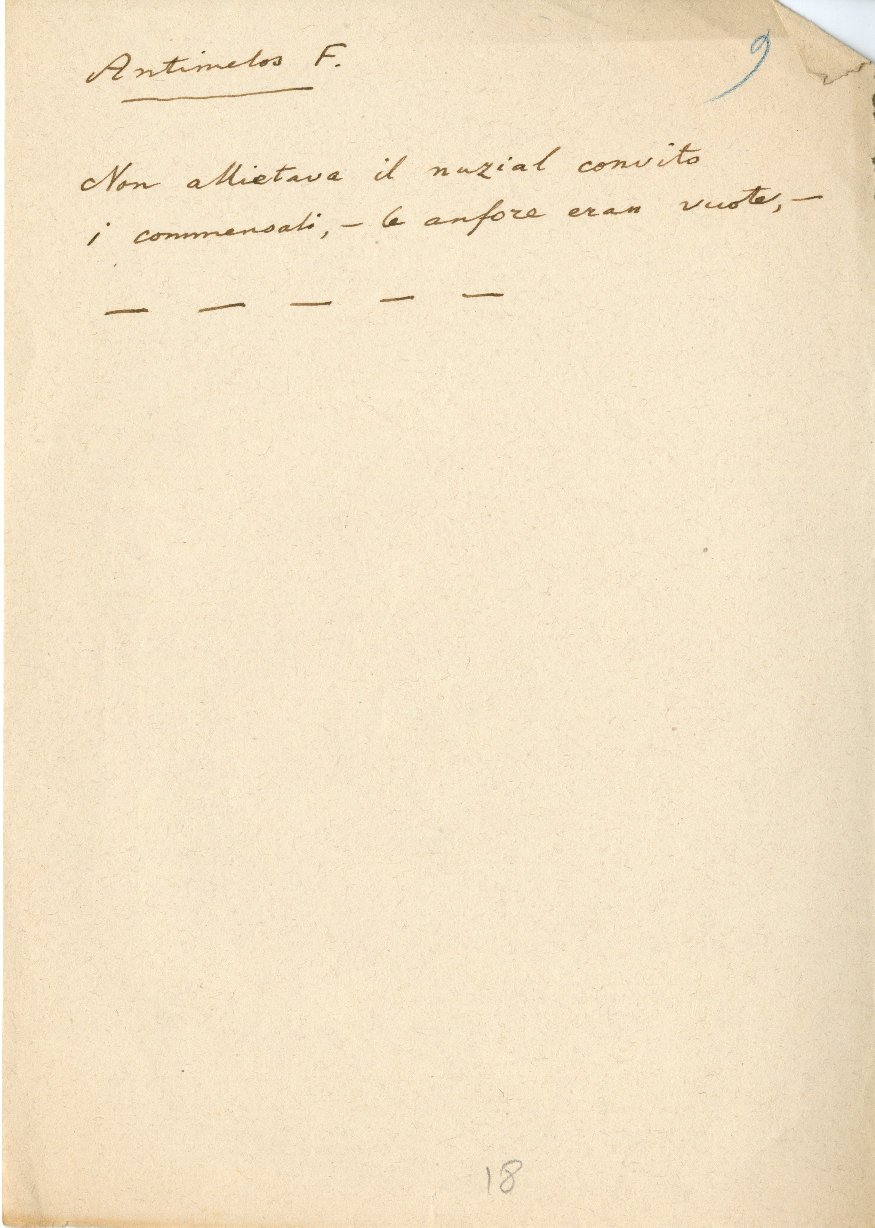 Antimelos F.
9
Non allietava il nuzial convito
i commensali, – le anfore eran vuote, –
— — — — —
18